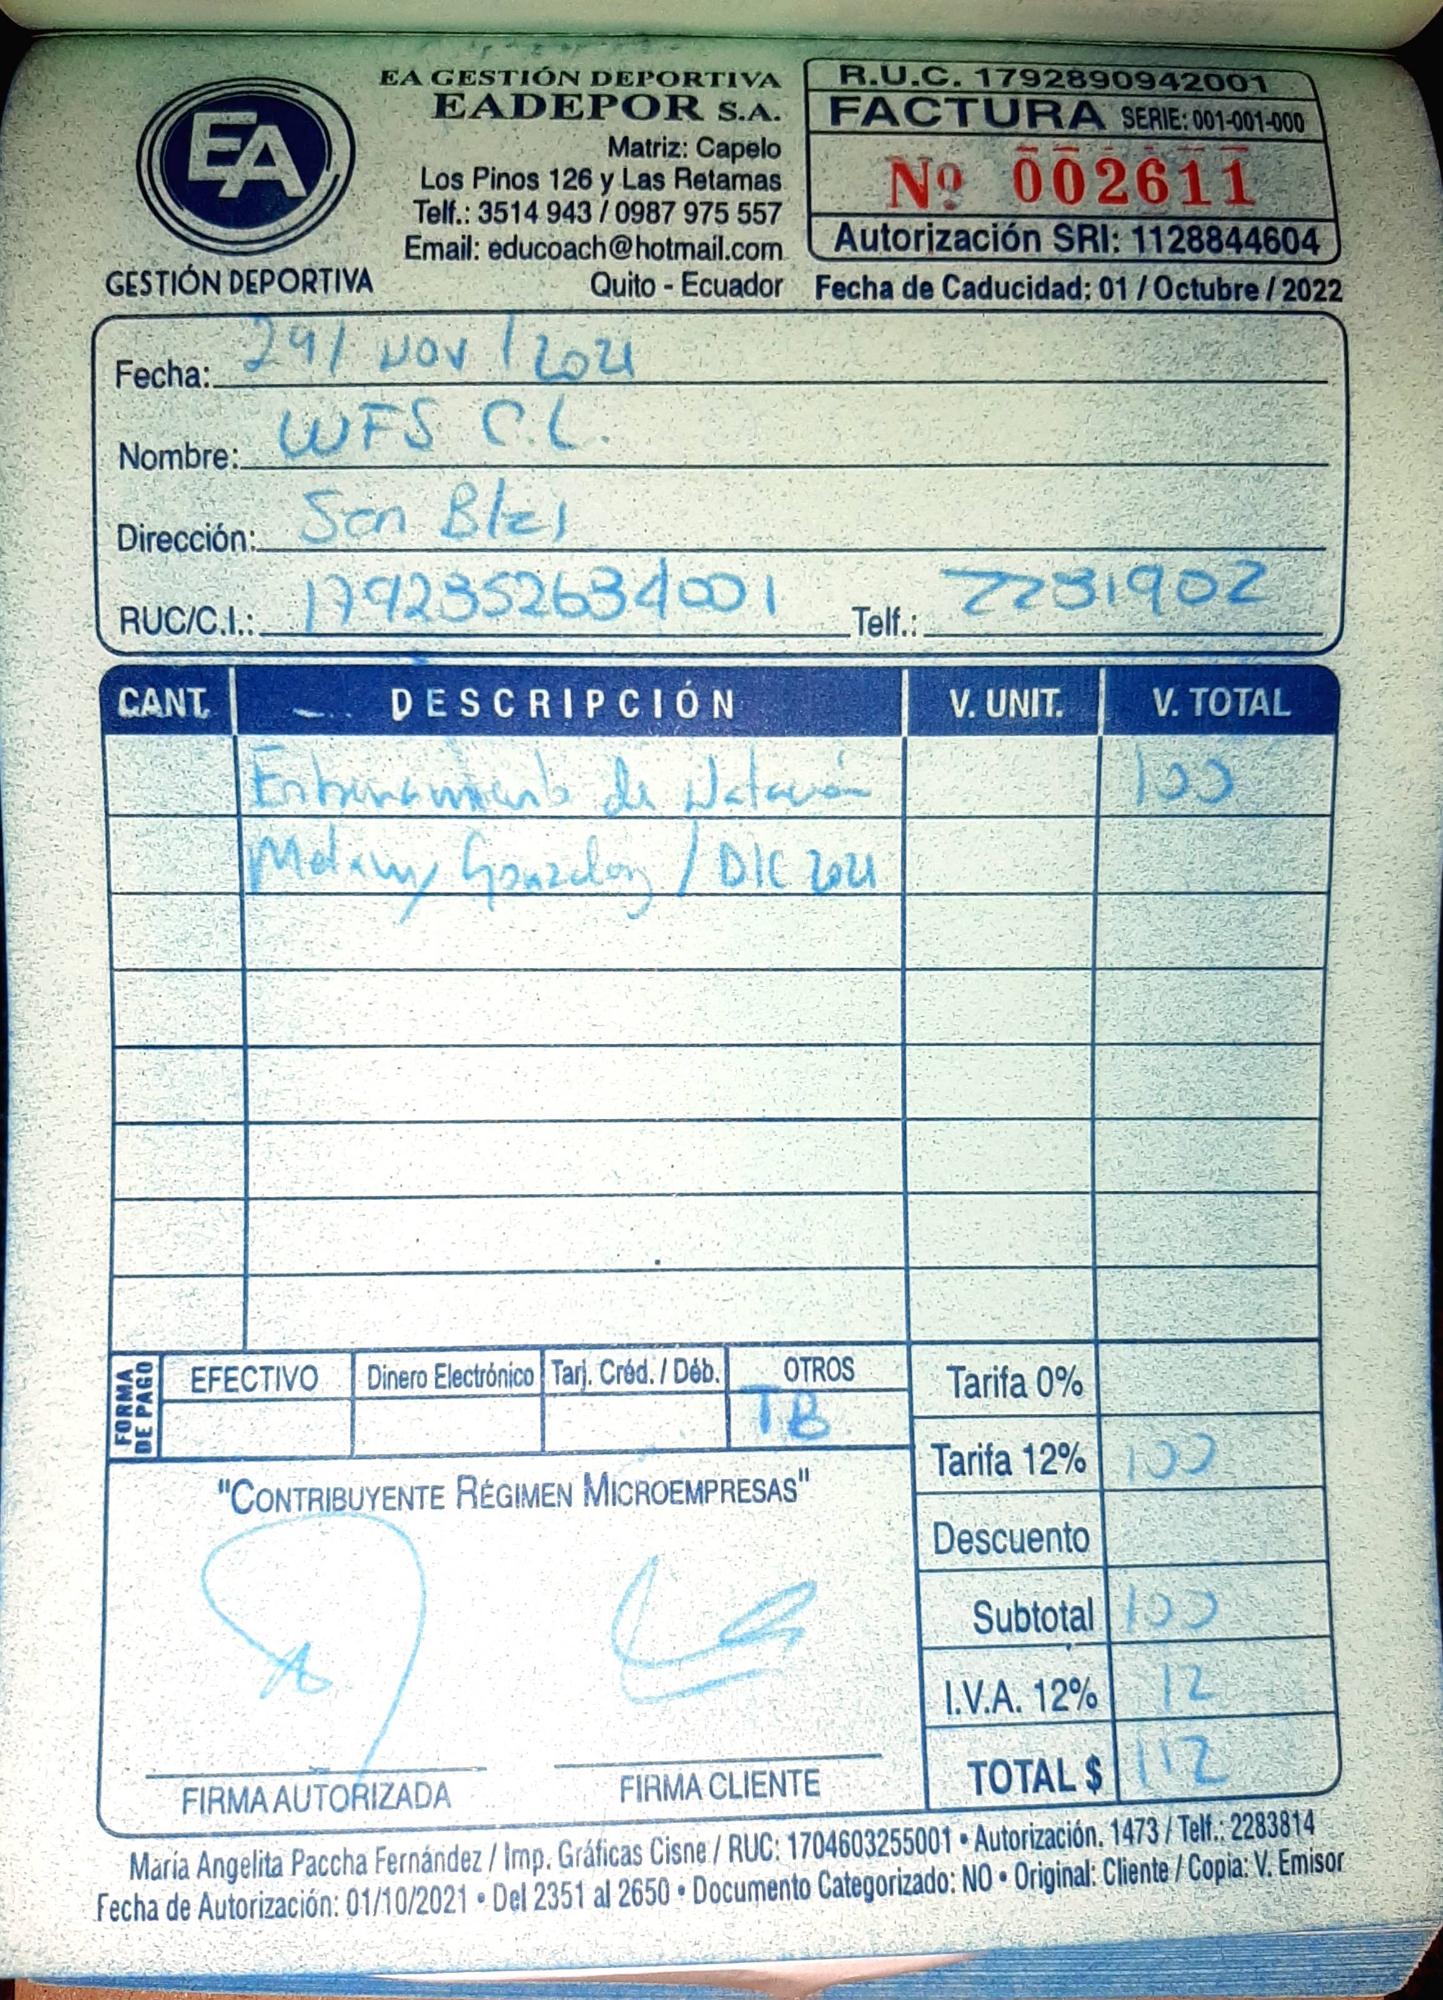 EA
GESTIÓN DEPORTIVA
EA GESTIÓN DEPORTIVA
EADEPOR S.A.
Matriz: Capelo
Los Pinos 126 y Las Retamas
Telf.: 3514 943 / 0987 975 557
Email: educoach@hotmail.com
Quito - Ecuador
R.U.C. 1792890942001
FACTURA SERIE: 001-001-000
Nº 002611
Autorización SRI: 1128844604
Fecha de Caducidad: 01 / Octubre / 2022
Fecha: 29/ NOV / 2021
Nombre: WFS C.L.
Dirección: San Blas
RUC/C.I.: 1792352634001 Telf.: 2231902
CANT. DESCRIPCIÓN V. UNIT. V. TOTAL
Entrenamiento de Natación 100
Melany González / DIC 2021
FORMA DE PAGO EFECTIVO Dinero Electrónico Tarj. Créd. / Déb. OTROS
TB
Tarifa 0%
Tarifa 12% 100
Descuento
Subtotal 100
I.V.A. 12% 12
TOTAL $ 112
"CONTRIBUYENTE RÉGIMEN MICROEMPRESAS"
FIRMA AUTORIZADA FIRMA CLIENTE
María Angelita Paccha Fernández / Imp. Gráficas Cisne / RUC: 1704603255001 • Autorización. 1473 / Telf.: 2283814
Fecha de Autorización: 01/10/2021 • Del 2351 al 2650 • Documento Categorizado: NO • Original: Cliente / Copia: V. Emisor